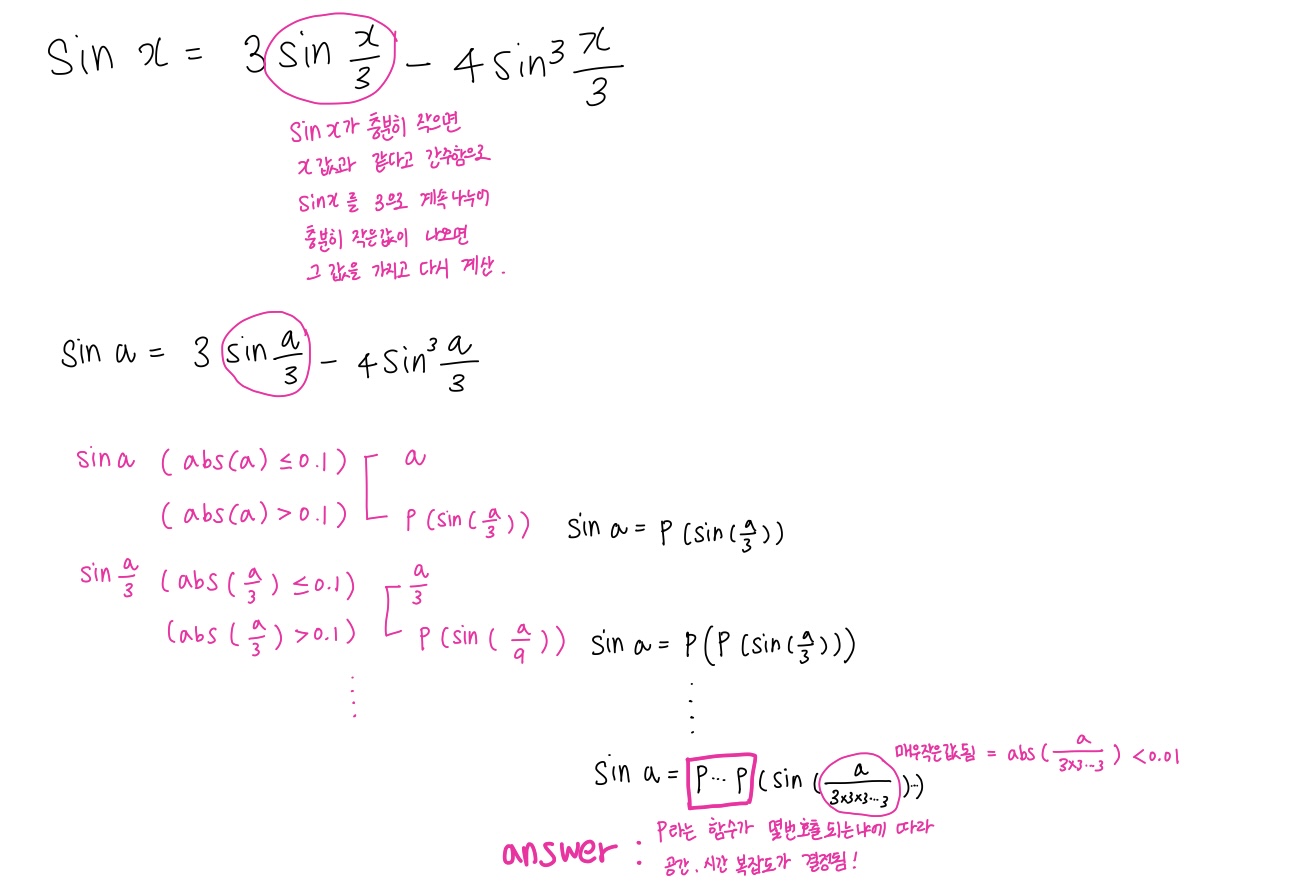 Sin x = 3 sin x/3 - 4 sin³ x/3
Sin x가 충분히 작으면
x 값과 같다고 간주함으로
sin x를 3으로 계속 나누어
충분히 작은값이 나오면
그 값을 가지고 다시 계산.
Sin a = 3 sin a/3 - 4 Sin³ a/3
sin a (abs(a) ≤ 0.1) a
(abs(a) > 0.1) P (sin(a/3)) Sin a = P (sin(a/3))
sin a/3 (abs(a/3) ≤ 0.1) a/3
(abs(a/3) > 0.1) P (sin(a/9)) Sin a = P(P (sin(a/3)))
매우작은값됨 = abs(a/3×3…3) < 0.01
Sin a = P… P (sin (a/3×3×3…3)…)
answer : P라는 함수가 몇번호출 되느냐에 따라
공간, 시간 복잡도가 결정됨!